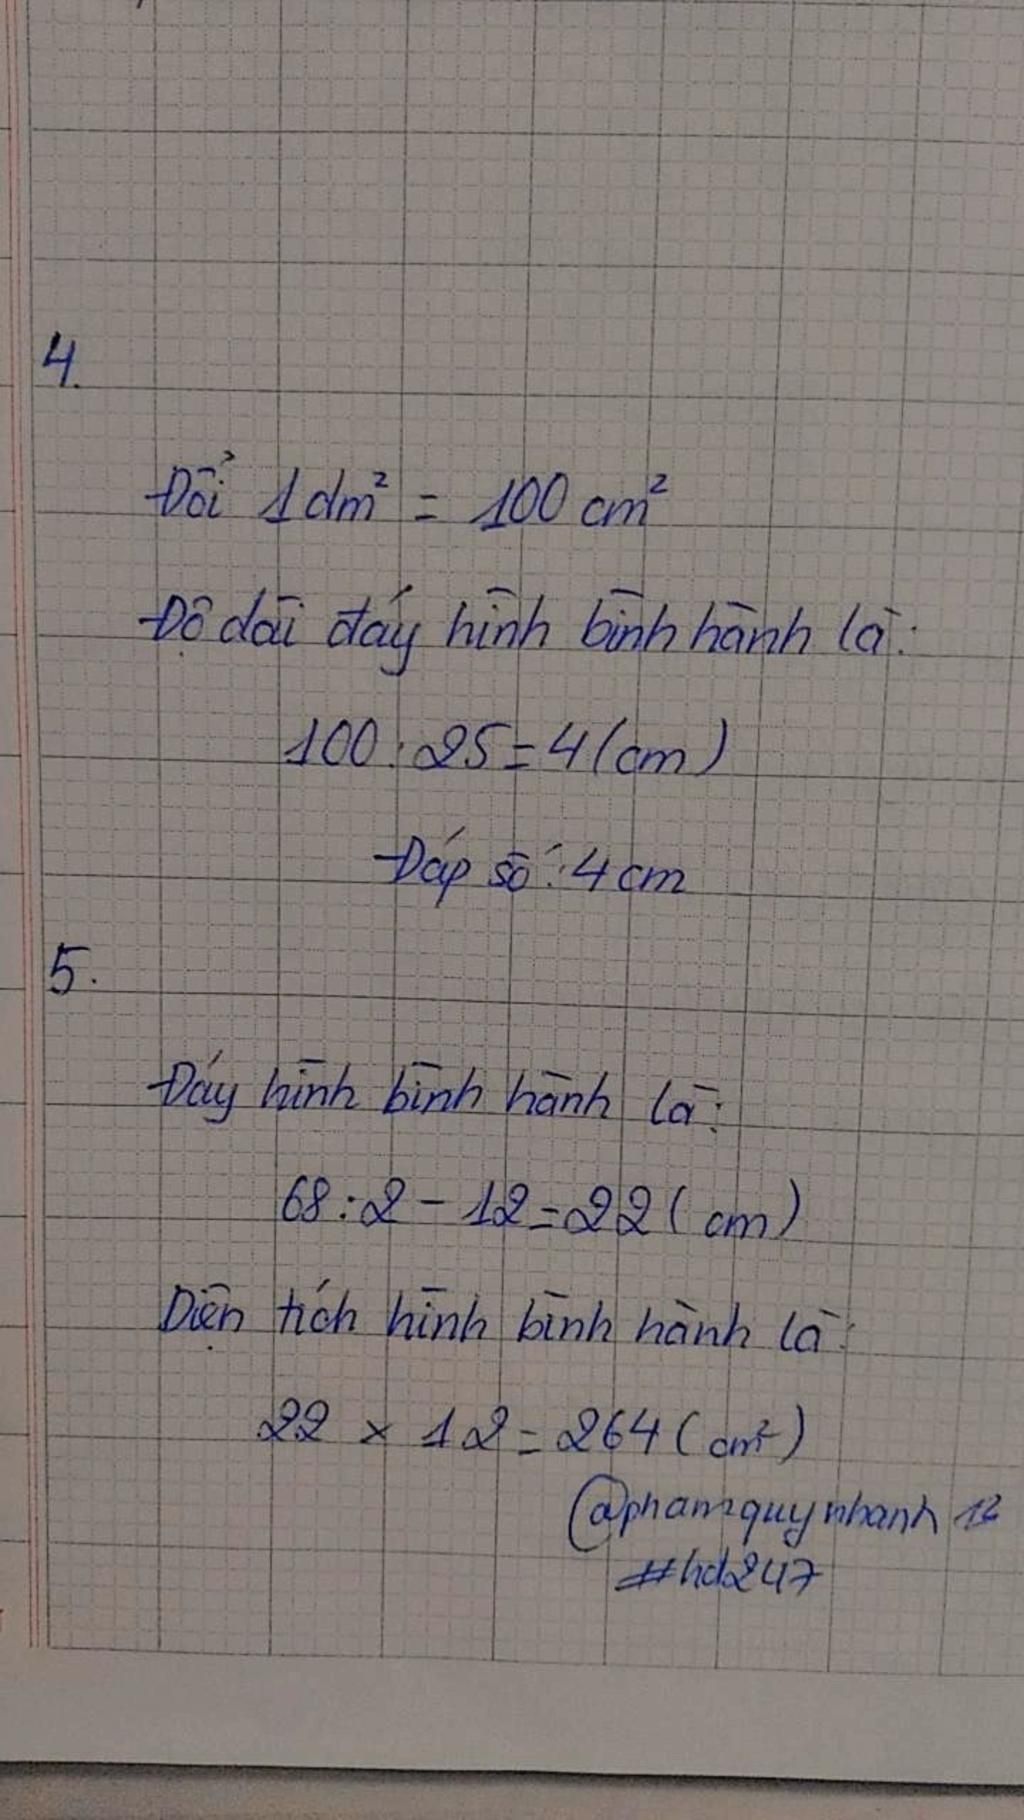 4.
Đổi 1dm² = 100 cm²
Độ dài đáy hình bình hành là:
100 : 25 = 4 (cm)
Đáp số : 4 cm
5.
Đáy hình bình hành là:
68 : 2 - 12 = 22 ( cm )
Diện tích hình bình hành là:
22 x 12 = 264 ( cm² )
@phamquynhanh12
#hd247